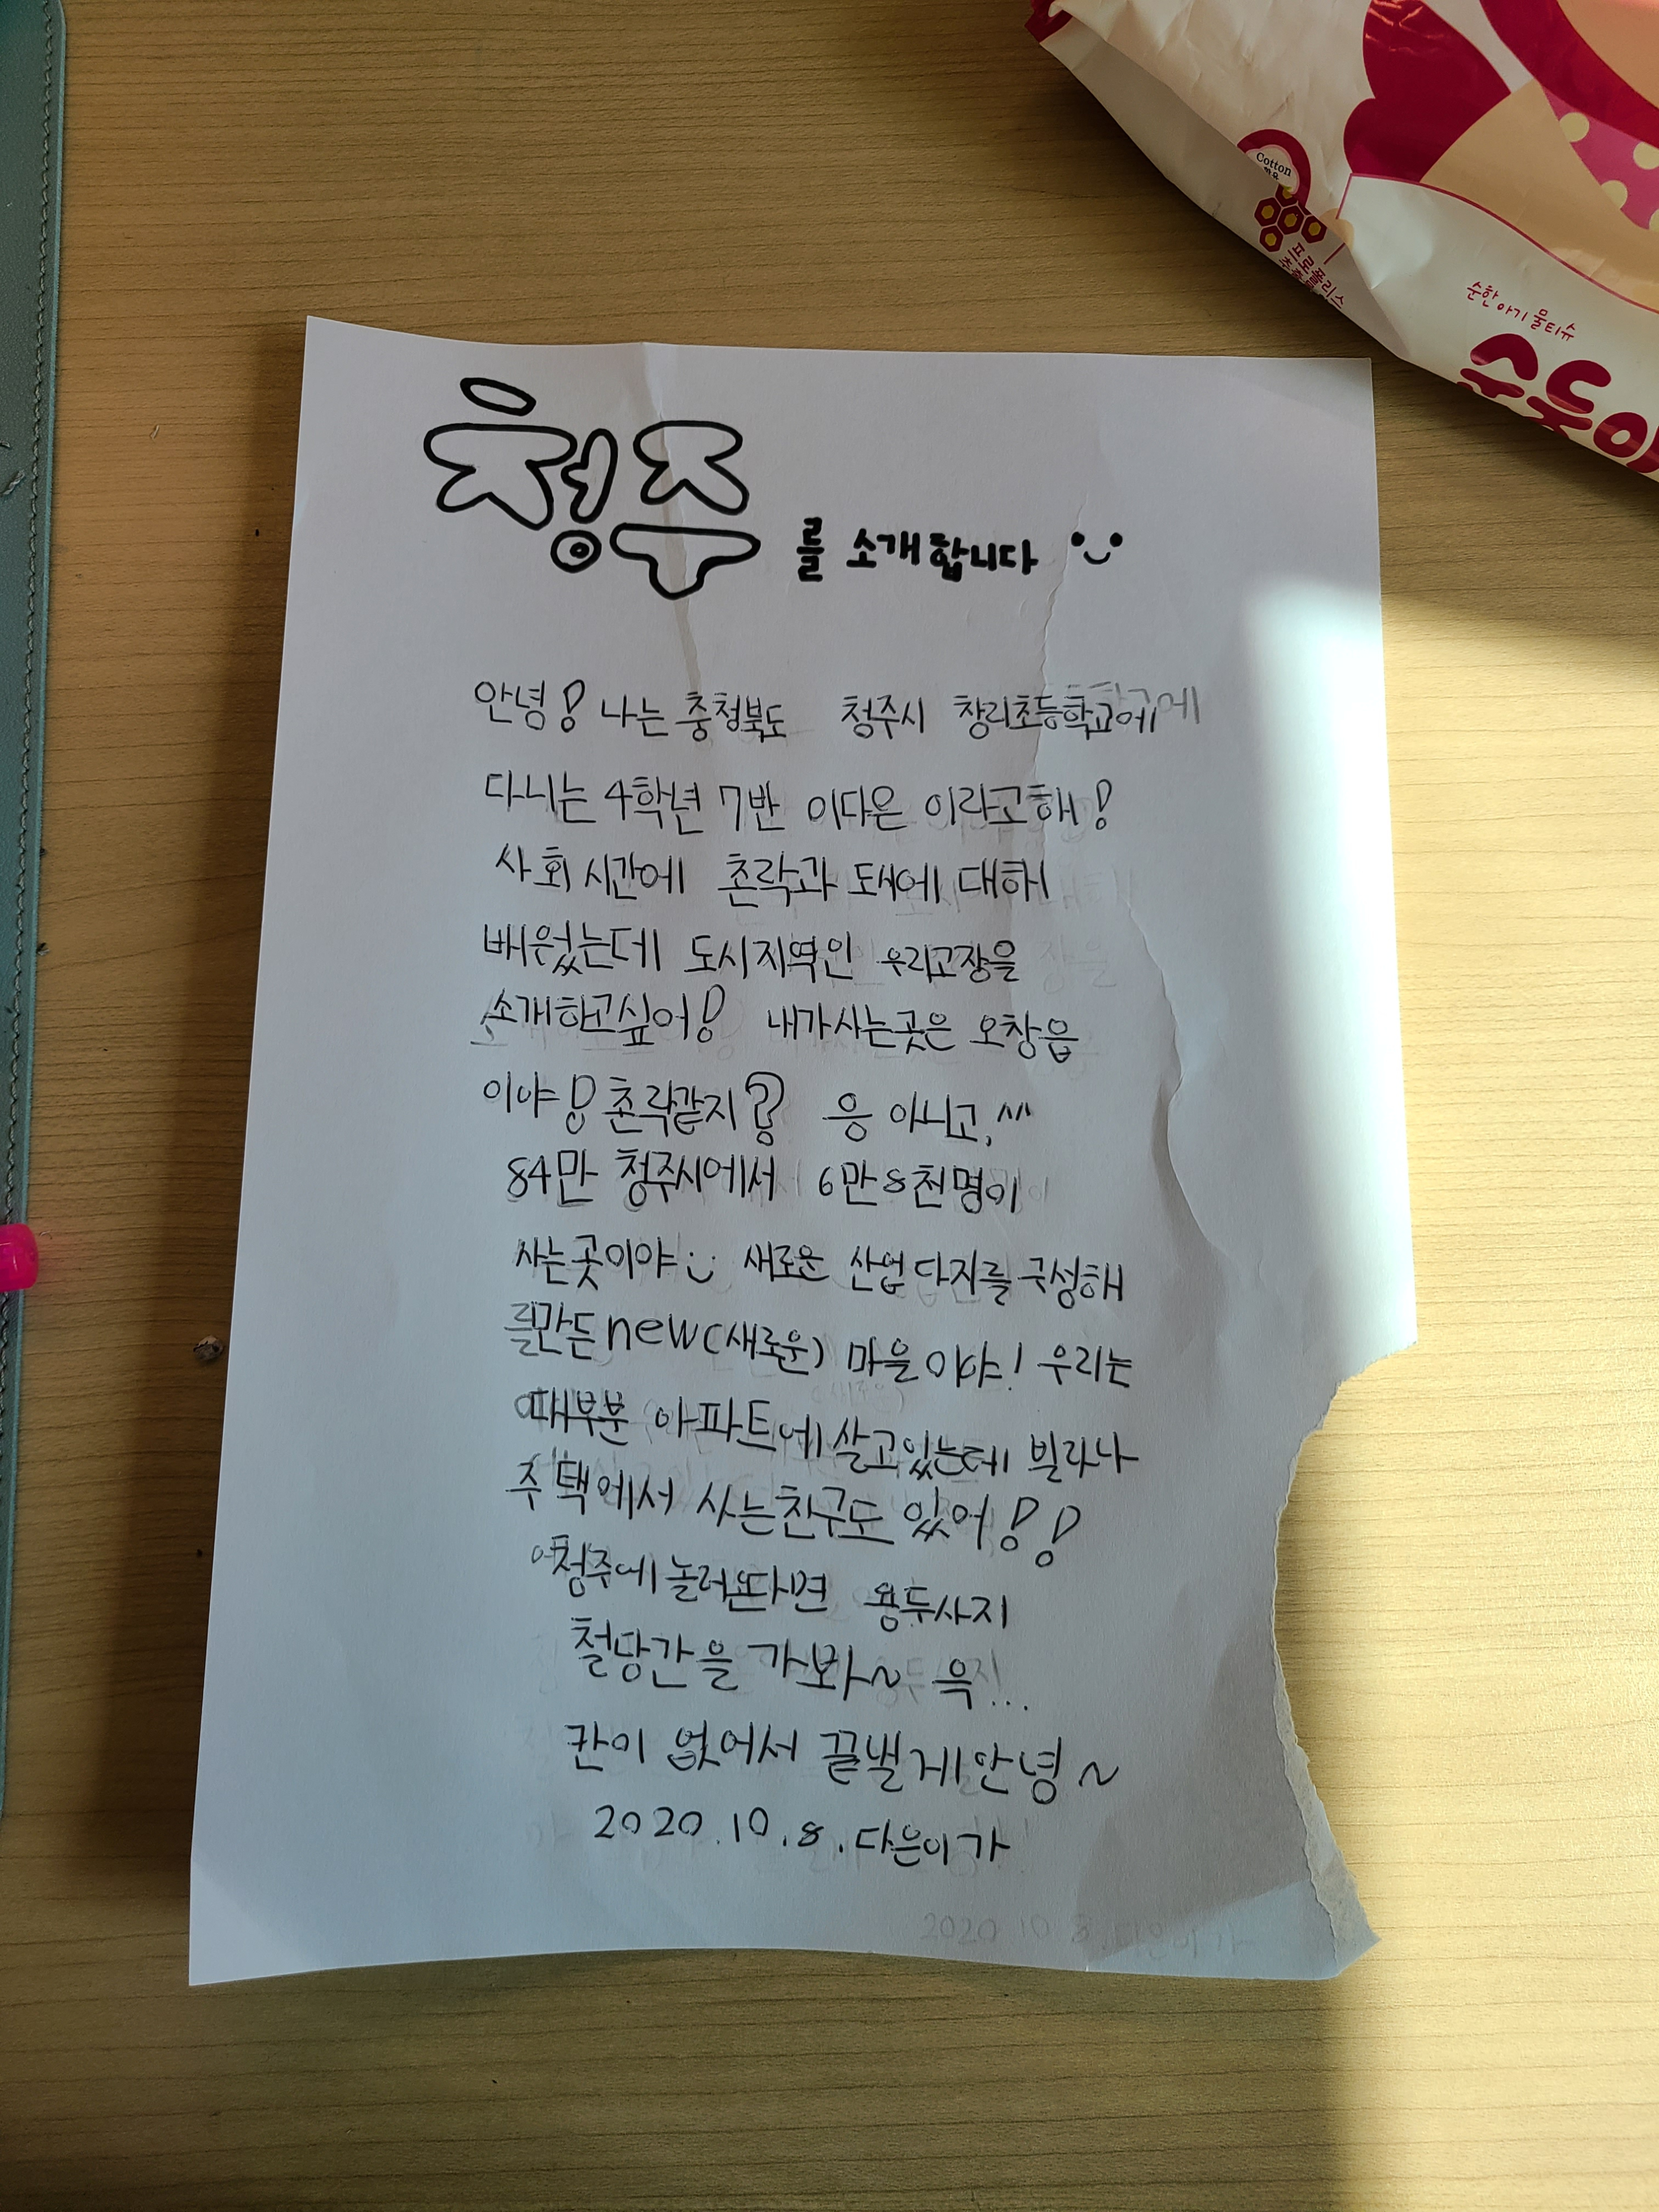 Cotton
프로폴리스
순한 아기 물티슈
순둥이
청주를 소개합니다
안녕! 나는 충청북도 청주시 창리초등학교에
다니는 4학년 7반 이다은 이라고해!
사회 시간에 촌락과 도시에 대해
배웠는데 도시지역인 우리고장을
소개하고싶어! 내가사는곳은 오창읍
이야! 촌락같지? 응 아니고,^^^
84만 청주시에서 6만8천명이
사는곳이야 새로운 산업단지를 구성해
를만든new(새로운) 마을이야! 우리는
대부분 아파트에살고있는데 빌라나
주택에서 사는친구도 있어!!
청주에놀러온다면 용두사지
철당간을 가봐~ 윽...
칸이 없어서 끝낼게안녕~
2020.10.8.다은이가
2020 10 8.다은이가